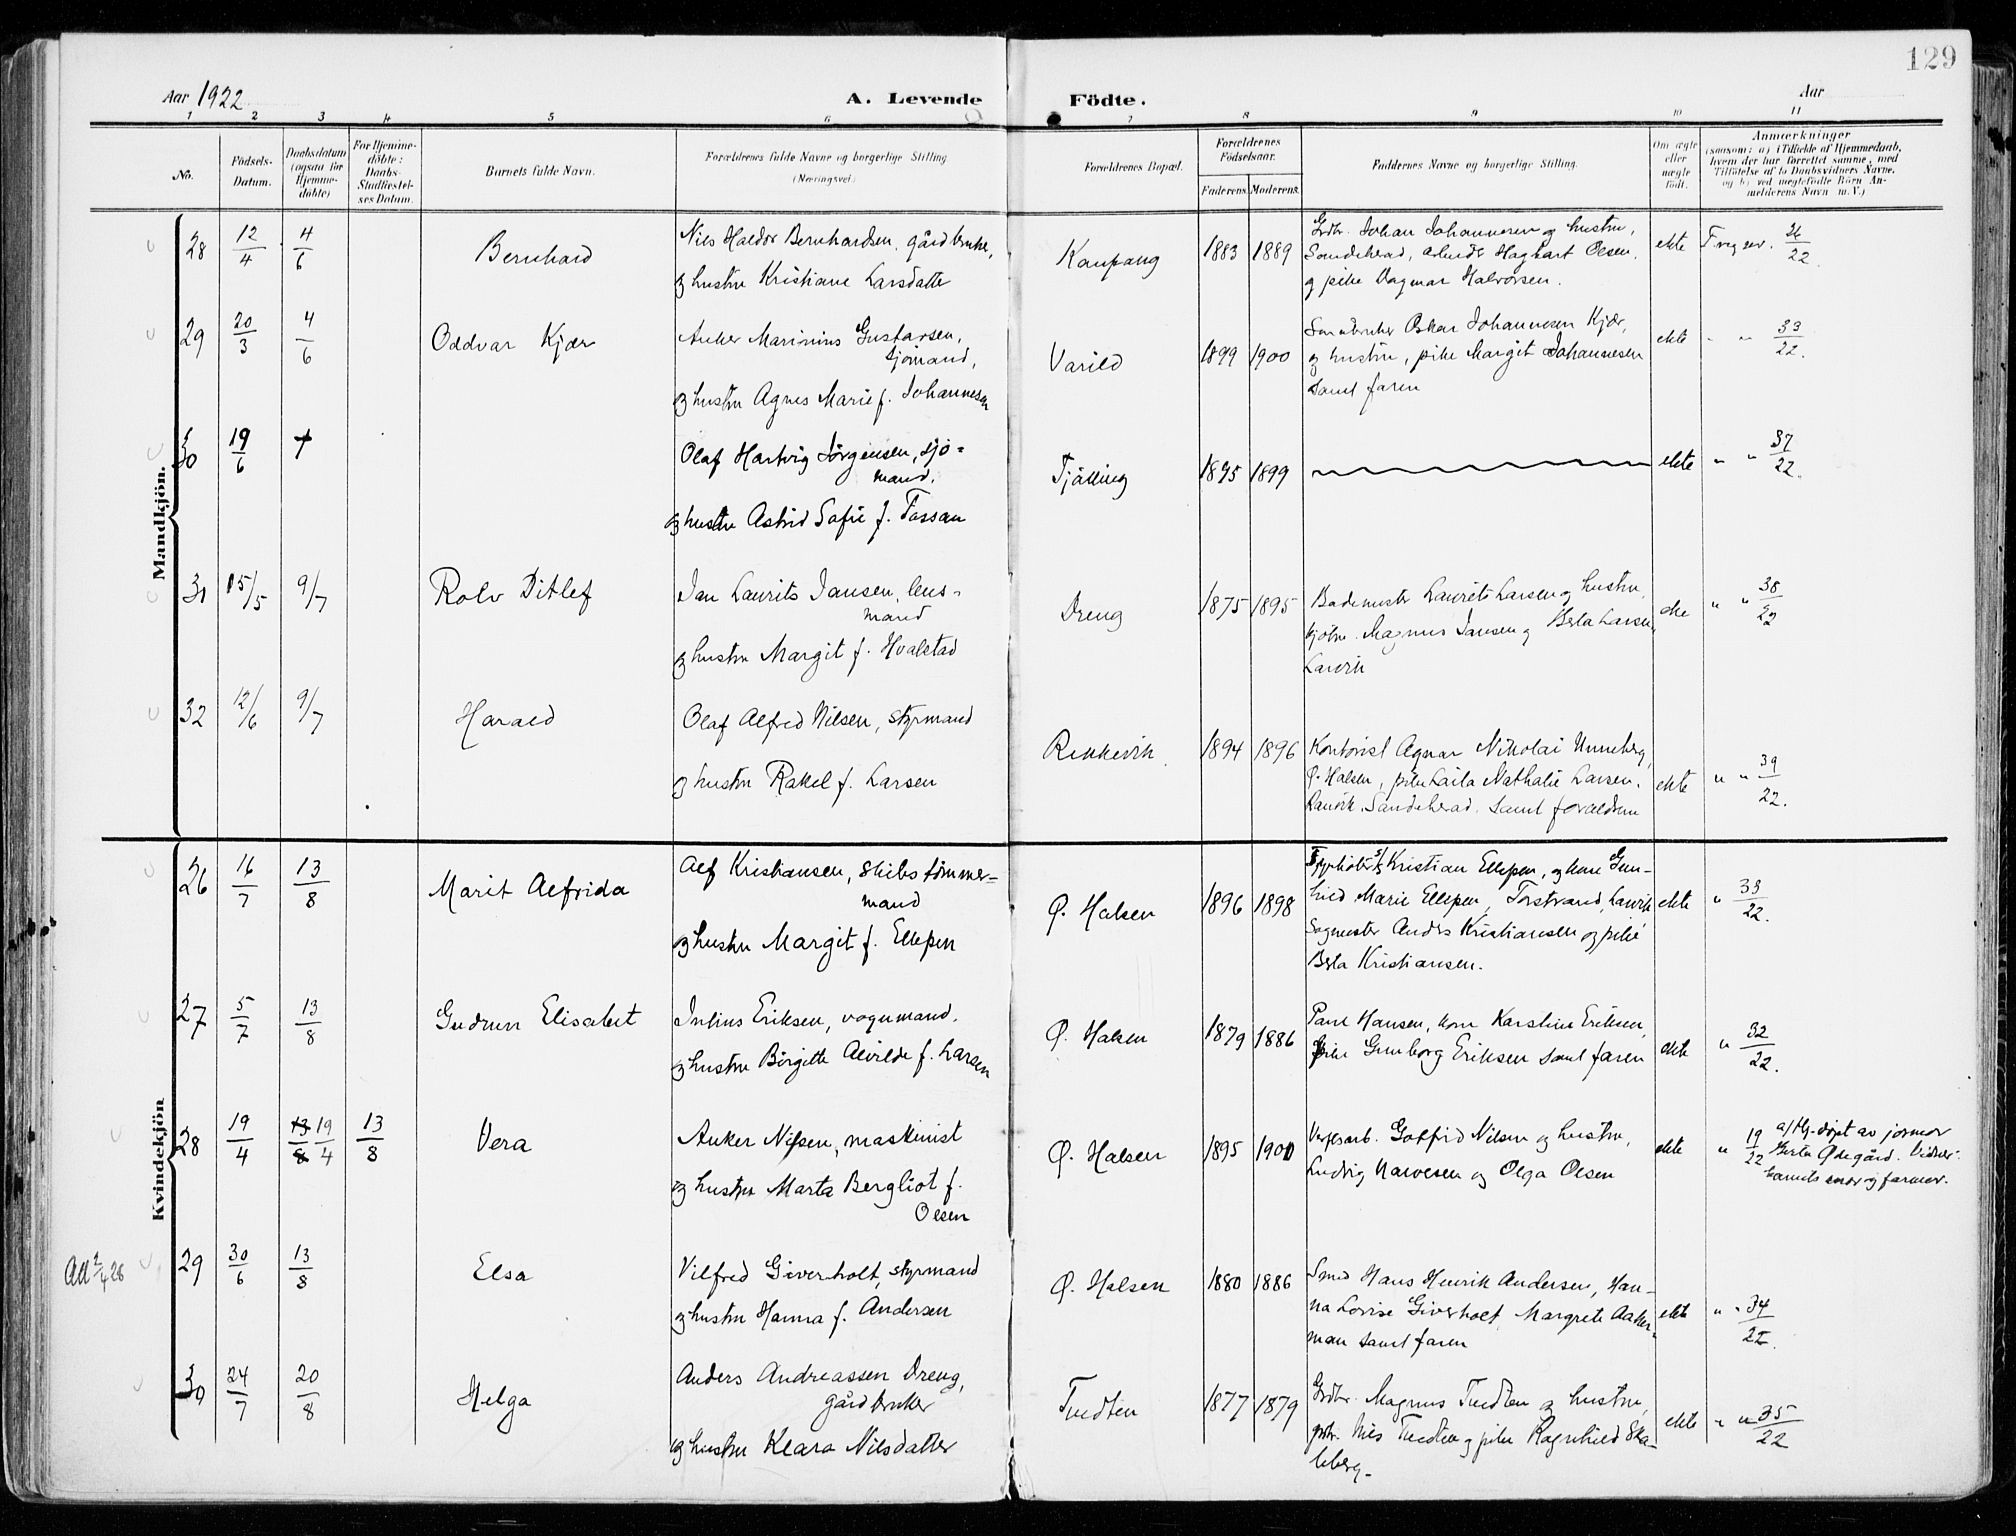 129
Aar 1922
A. Levende Födte.
Aar
1 2 3 4 5 6 7 8 9 10 11
No.
Födsels-Datum.
Daabsdatum (ogsaa for Hjemme-döbte)
For Hjemme-döbte: Daabs-Stadfæstel-ses Datum.
Barnets fulde Navn.
Forældrenes fulde Navne og borgerlige Stilling
(Næringsvei)
Forældrenes Bopæl.
Forældrenes Födselsaar.
Faderens Moderens.
Faddernes Navne og borgerlige Stilling.
Om ægte eller uægte födt.
Anmærkninger
(saasom: a) i Tilfælde af Hjemmedaab,
hvem der har forrettet samme, med
Tilföielse af to Daabsvidners Navne,
og b) ved uægtefödte Börn An-
melderens Navn m. V.)
Mandkjön.
28 12/4 4/6 Bernhard
Nils Haldor Bernhardsen, gårdbruker,
og hustru Kristiane Larsdatter
Kaupang 1883 1889
Grdbr. Johan Johannesen og hustru,
Sandeherad, Hagbart Olsen,
og pike Dagmar Halvorsen.
ekte
29 20/3 4/6 Oddvar Kjær
Anker Marinius Gustavsen,
sjömand,
og hustru Agnes Marie f. Johannesen
Varild 1899 1900
Oskar Johannesen Kjær,
og hustru, pike Margit Johannesen
samt faren
ekte " " 33/22.
30 19/6 †
Olaf Hartvig Jörgensen, sjö-
mand.
og hustru Astrid Sofie f. Tassan
Tjölling 1895 1899
ekte " " 37/22.
31 15/5 9/7 Rolv Ditlef
Jan Laurits Jansen, lens-
mand
og hustru Margit f. Hvalstad
Dreng 1875 1895
Bademester Laurits Larsen og hustru,
Magnus Jansen og Berta Larsen,
Larvik
ekte " " 38/22
32 12/6 9/7 Harald
Olaf Alfred Nilsen, styrmand
og hustru Rakel f. Larsen
Rekkevik. 1894 1896
Kontorist Agnar Nikolai Unneberg,
Ø. Halsen, pike Laila Nathalie Larsen,
Larvik, Sandeherad. samt foreldrene
ekte " " 39/22.
Kvindekjön
26 16/7 13/8 Marit Alfrida
Alf Kristiansen, skibstömmer-
mand
og hustru Margit f. Ellefsen
Ø. Halsen 1896 1898
Kristian Ellefsen, og kone Gun-
hild Marie Ellefsen, Torstrand, Larvik
Sagmester Anders Kristiansen og pike
Berta Kristiansen.
ekte " 33/22.
27 5/7 13/8 Gudrun Elisabet
Julius Eriksen, vognmand.
og hustru Börgitte Alvilde f. Larsen
Ø. Halsen 1879 1886
Paul Hansen, kone Karstine Eriksen,
pike Gunborg Eriksen samt faren
ekte " 32/22.
28 19/4 13/8 19/4 13/8 Vera
Anker Nilsen, maskinist
og hustru Marta Bergliot f.
Olsen
Ø. Halsen 1895 1900
Verftsarb. Gotfrid Nilsen og hustru,
Ludvig Narvesen og Olga Olsen
ekte " 19/22
a/ Hj.döpt av jormor
Berta Ødegård. Vidner:
barnets mor og farmor.
29 30/6 13/8 Elsa
Vilfred Giverholt, styrmand
og hustru Hanna f. Andersen
Ø. Halsen 1880 1886
Smed Hans Henrik Andersen, Han-
na Lovise Giverholt, Margrete Aaker-
man samt faren
ekte " " 34/22.
30 24/7 20/8 Helga
Anders Andreassen Dreng,
gårdbruker
og hustru Klara Nilsdatter
Tvedten 1877 1879
Grdbr. Magnus Tvedten og hustru,
grdbr. Nils Tvedten og pike Ragnhild Ska-
leberg.
ekte " " 35/22